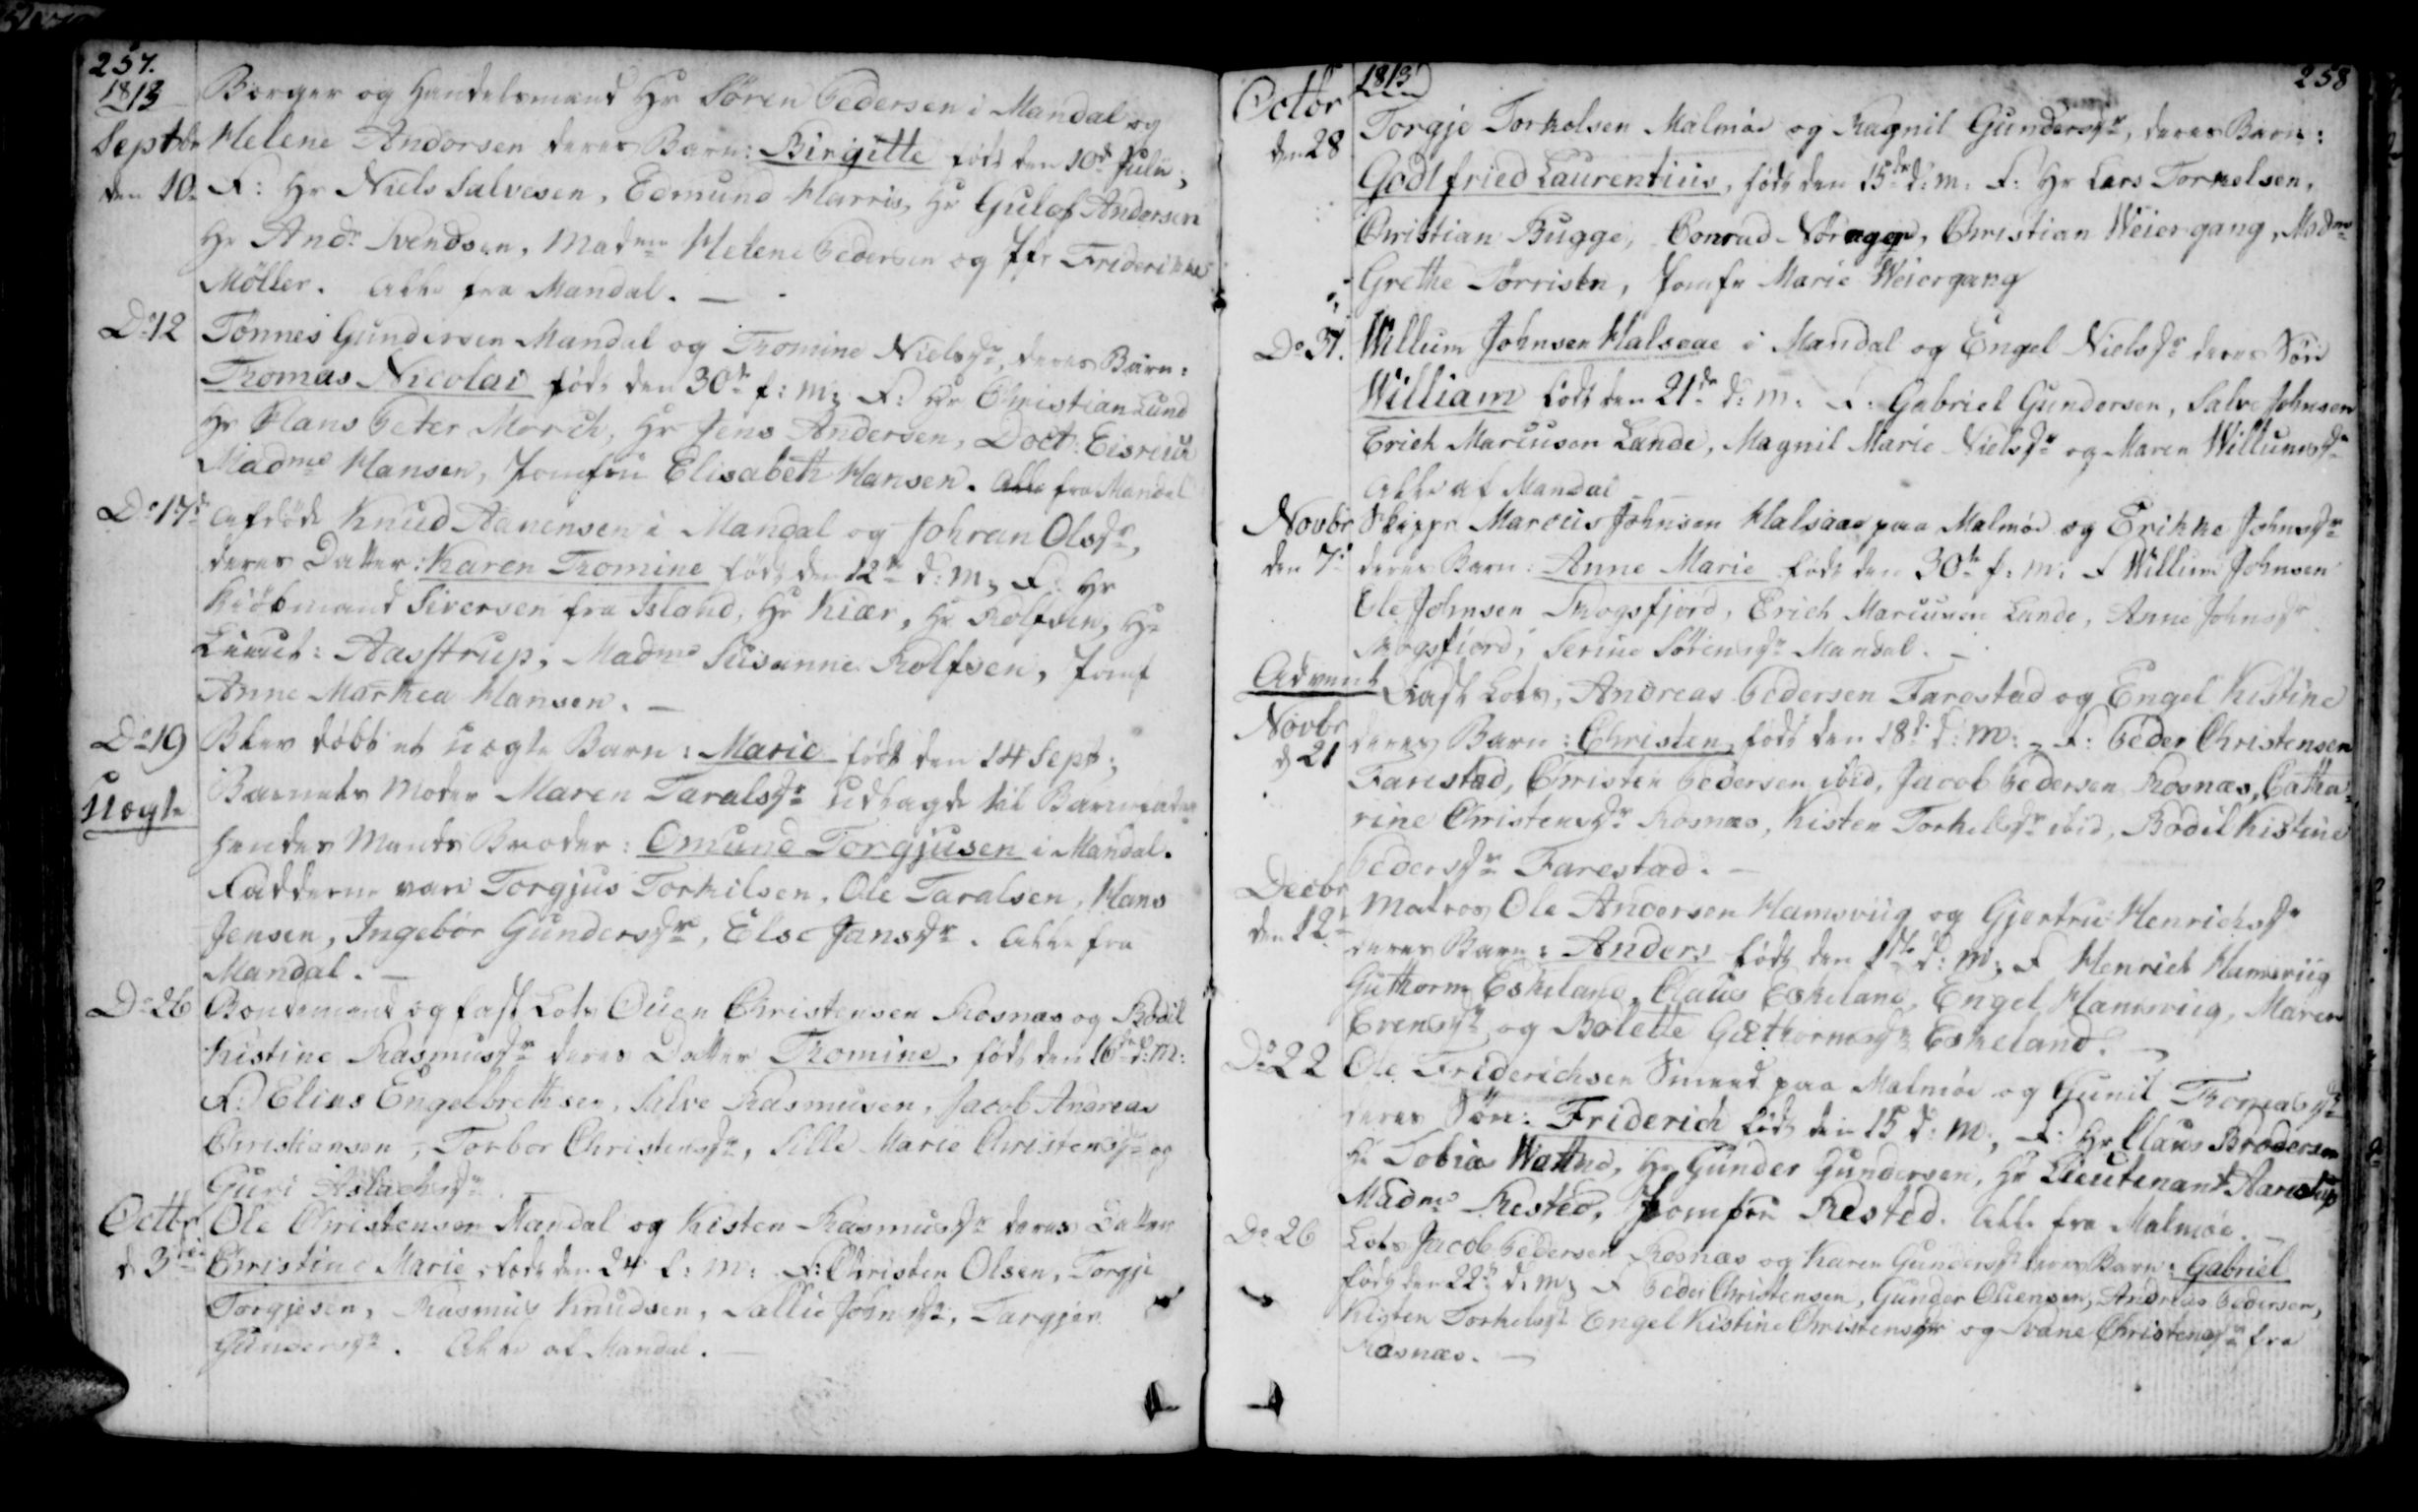 257.
1813
Septbr
den 10.
Borger og Handelsmand Hr Søren Pedersen i Mandal og
Helene Andersen deres Barn: Birgitte født den 10de Julii;
F: Hr Niels Salvesen, Edmund Harris, Hr Gulof Andersen
Hr Andr Svendsen, Madme Helene Pedersen og Jfr Friderikke
Møller. Alle fra Mandal. —
Do 12
Tønnes Gundersen Mandal og Thomine Nielsdr, deres Barn:
Thomas Nicolai født den 30te f: m; F: Hr Christian Lund
Hr Hans Peter Morch, Hr Jens Andersen, Doct:
Madme Hansen, Jomfru Elisabeth Hansen. Alle fra Mandal
Do 17de
Afdøde Knud Aanensen i Mandal og Johran Olsdr,
deres Datter: Karen Thomine født den 12te d: m; F: Hr
Kiøbmand Siversen fra Island, Hr Kiær, Hr Rolfsen, Hr
Lieut: Aasstrup, Madme Susanne Rolfsen, Jomf
Anne Marthea Hansen. —
Do 19
Uægte
Blev døbt et uægte Barn: Marie født den 14 Sept;
Barnets Moder Maren Taralsdr udlagde til Barnefader
hendes Mands Broder: Omund Torgjusen i Mandal.
Fadderne vare Torgjus Torkilsen, Ole Taralsen, Hans
Jensen, Ingebor Gundersdr, Else Jansdr. Alle fra
Mandal. —
Do 26
Bondemand og fast Lots Ouen Christensen Rosnæs og Bodil
Kistine Rasmusdr deres Datter Thomine, født den 16de d: m:
F: Elias Engelbrethsen, Salve Rasmusen, Jacob Andreas
Christiansen, Torbor Christensdr, Sille Marie Christensdr og
Guri Aslachsdr.
Octbr
d 3die
Ole Christensen Mandal og Kisten Rasmusdr deres Datter
Christine Marie, født den 24 f: m: F: Christen Olsen, Torgje
Torgjesen, Rasmus Knudsen, Sallie Johnsdr, Targjer
Gundersdr. Alle af Mandal. —
258
1813
Octbr
den 28
Torgje Torkelsen Malmøe og Ragnil Gundersdr, deres Barn:
Godtfried Laurentius, født den 15de d: m. F: Hr Lars Torkelsen,
Christian Bugge, Conrad, Christian Weiergang, Madme
Grethe Tørrisen, Jomfr Marie Weiergang
Do 31.
Willum Johnsen Halsaae i Mandal og Engel Nielsdr deres Søn
William født den 21de d: m: F: Gabriel Gundersen, Salve Johnsen
Erich Marcusen Lande, Magnil Marie Nielsdr og Maren Willumsdr
Alle af Mandal
Novbr
den 7de
Skippr Marcus Johnsen Halsaae paa Malmøe og Erikke Johnsdr
deres Barn: Anne Marie født den 30te f: m: F Willum Johnsen
Ole Johnsen Skogsfjord, Erich Marcusen Lande, Anne Johnsdr
Skogsfiord, Serine Sørensdr Mandal. —
Advent
Novbr
d 21
Fast Lots, Andreas Pedersen Farestad og Engel Kistine
deres Barn: Christen, født den 18de d: m: F: Peder Christensen
Farestad, Christen Pedersen ibid, Jacob Pedersen Rosnæs, Catha-
rine Christensdr Rosnæs, Kisten Torkelsdr ibid, Bodil Kistine
Pedersdr Farestad. —
Decbr
den 12te
Matros Ole Andersen Hamsviig og Gjertru Henrichsdr
deres Barn: Anders født den 1ste d: m; F Henrich Hamsviig
Guthorm Eskeland, Claus Eskeland, Engel Hamsviig, Maren
Evensdr og Bolette Guthormsdr Eskeland. —
Do 22
Ole Friderichsen Smeed paa Malmøe og Gunil Thomasdr
deres Søn: Friderich født den 15 d: m, F: Hr Claus Brodersen
Hr Tobias Wattne, Hr Gunder Gundersen, Hr Lieutenant Aarestrup
Madme Rested, Jomfru Rested. Alle fra Malmøe. —
Do 26
Lots Jacob Pedersen Rosnæs og Karen Gundersdr deres Barn: Gabriel
født den 22de d: m; F Peder Christensen, Gunder Ouensen, Andreas Pedersen,
Kisten Torkelsdr Engel Kistine Christensdr og Svane Christensdr fra
Rosnæs. —